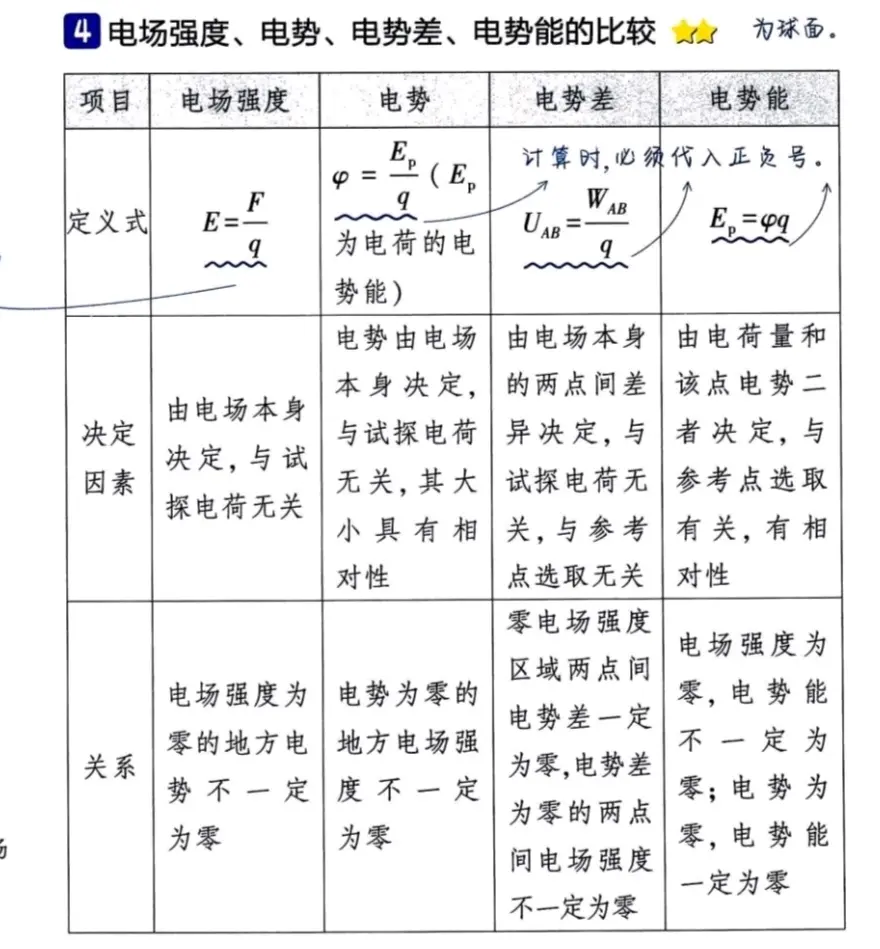 4 电场强度、电势、电势差、电势能的比较
为球面.
项目
电场强度
电势
电势差
电势能
定义式
E=F/q
φ=Ep/q(Ep
为电荷的电
势能)
计算时,必须代入正负号.
U_AB=W_AB/q
Ep=φq
决定
因素
由电场本身
决定,与试
探电荷无关
电势由电场
本身决定,
与试探电荷
无关,其大
小具有相
对性
由电场本身
的两点间差
异决定,与
试探电荷无
关,与参考
点选取无关
由电荷量和
该点电势二
者决定,与
参考点选取
有关,有相
对性
关系
电场强度为
零的地方电
势不一定
为零
电势为零的
地方电场强
度不一定
为零
零电场强度
区域两点间
电势差一定
为零,电势差
为零的两点
间电场强度
不一定为零
电场强度为
零,电势能
不一定为
零;电势为
零,电势能
一定为零